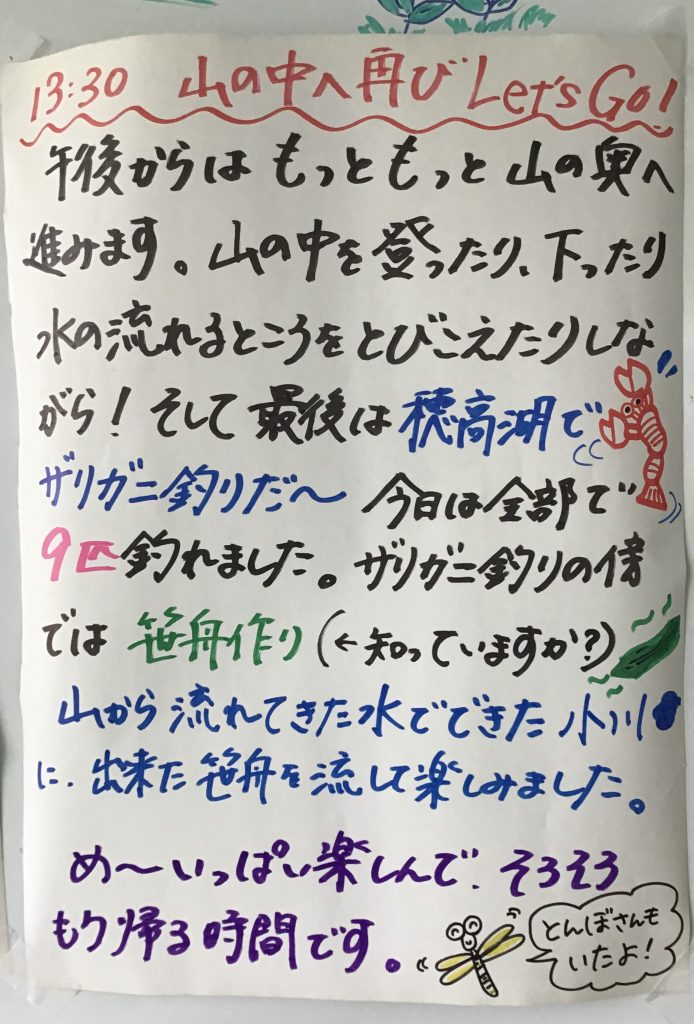 13:30 山の中へ再び Let's Go!
午後からは もっともっと 山の奥へ
進みます。山の中を登ったり、下ったり
水の流れるところをとびこえたりしな
がら！そして最後は穂高湖で
ザリガニ釣りだ〜 今日は全部で
9匹釣れました。ザリガニ釣りの傍
では 笹舟作り（←知っていますか？）
山から流れてきた水でできた小川
に、出来た笹舟を流して楽しみました。
め〜いっぱい楽しんで、そろそろ
もう帰る時間です。
とんぼさんも
いたよ！